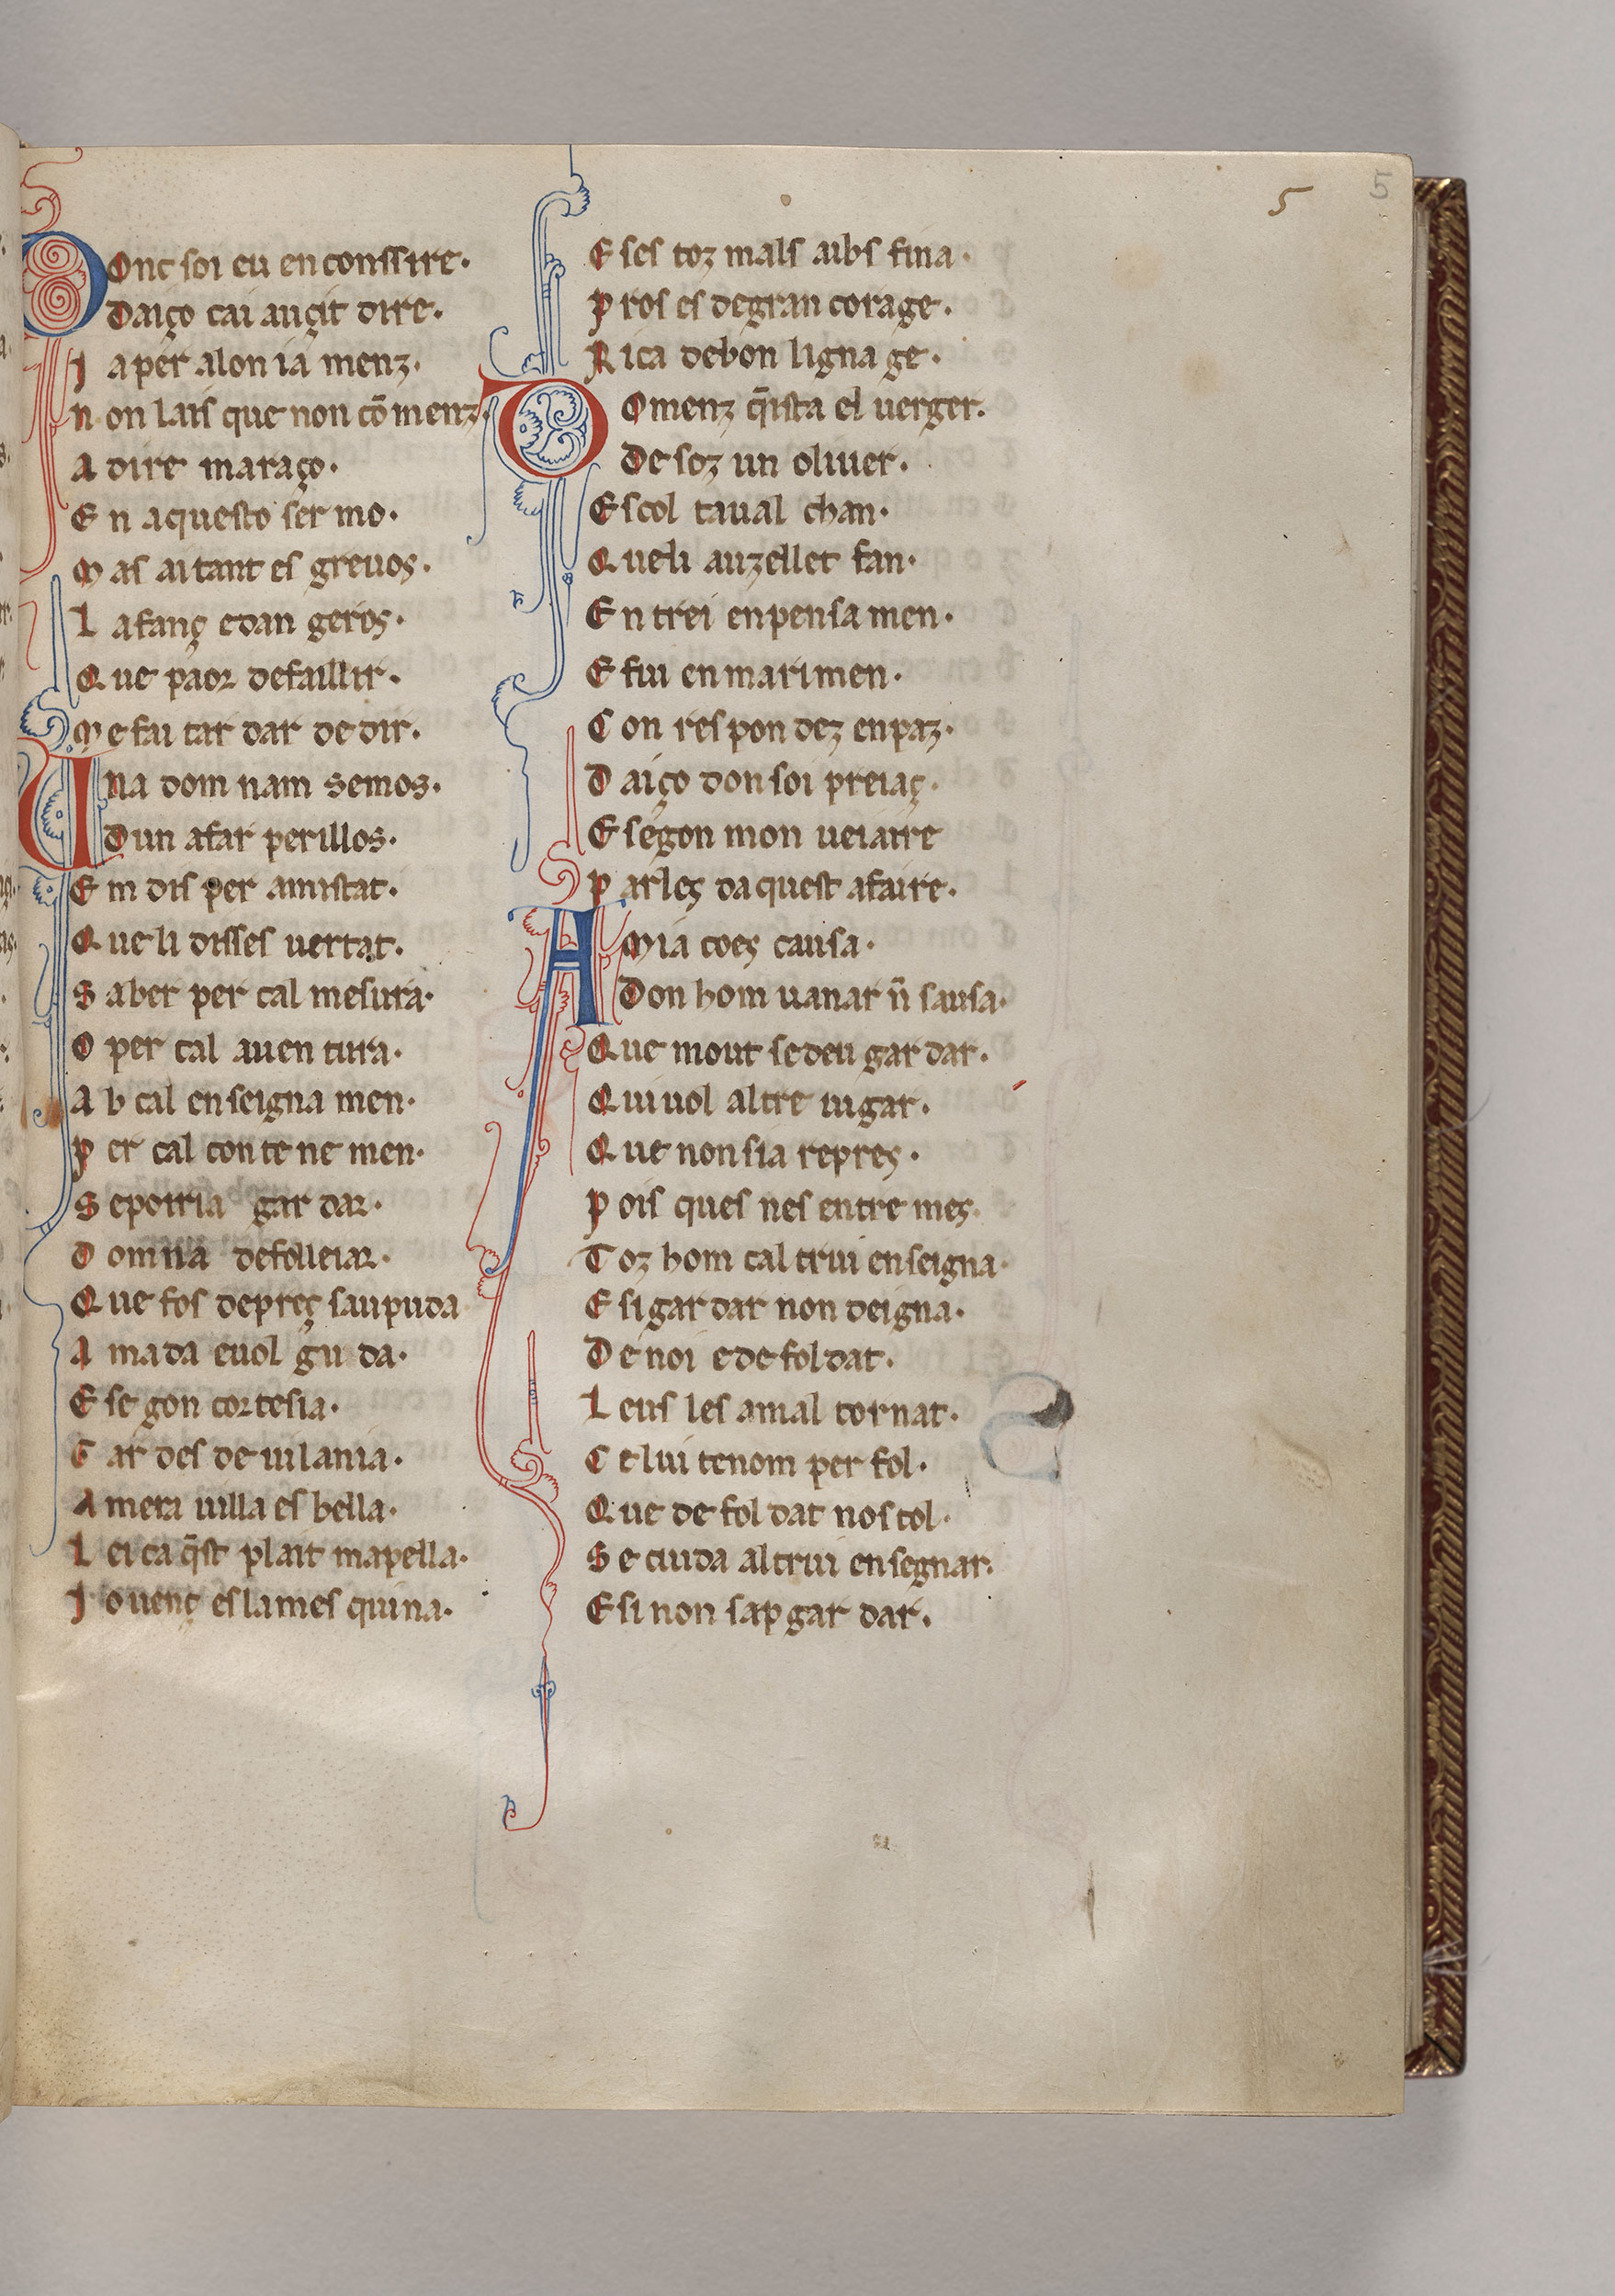 5 5
Donc soi eu en conssire·
Daiço cai auçit dire·
J a per alon ia menz·
n on lais que non cō menz·
A dire ma raço·
E n aquesto ser mo·
M as aitant es greuos·
L afanç e dan geros·
Que paor defaillir·
M e fai tar dar de dir·
Una dom nam semos·
Dun afar perillos·
E m dis per amistat·
Que li disses uertat·
S aber per cal mesura·
O per cal auen tura·
A b cal enseigna men·
P er cal con te ne men·
S e poiria gar dar·
D omna de folleiar·
Que fos de preç saupuda
A mada e uol gu da·
E se gon cortesia·
G ar des de uilania·
A mera uilla es bella·
L ei ca q̄st plait mapella·
J ouenç es la mes qui na·
E ses toz mals aibs fina·
P ros es de gran corage·
R ica de bon ligna ge·
Domenz q̄ista el uerger·
De soz un oliuer·
E scol taual chan·
Que li auzellet fan·
E n trei en pensa men·
E fui en mari men·
C on res pon dez en paz·
D aiço don soi preiaç·
E segon mon ueiaire
P arleç da quest afaire·
A Mia co es causa·
Don hom uanar n̄ sausa·
Que mout se deu gar dar·
Qui uol altre iugar·
Que non sia repres·
P ois ques nes entre mes·
T oz hom cal trui enseigna·
E si gar dar non deigna·
D e noi e de fol dat·
L eus les a mal tornat·
C elui tenom per fol·
Que de fol dat nos tol·
S e cuida altrui en segnar·
E si non sap gar dar·